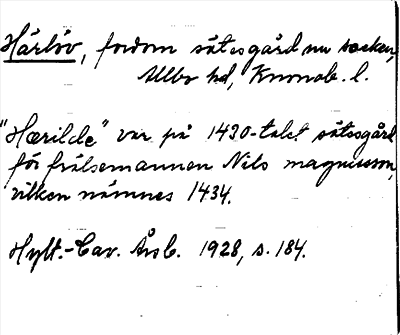 Härlöv, fordom sätesgård nu socken,
Allbo hd, Kronob. l.
"Hærilde" var på 1430-talet sätesgård
för frälsemannen Nils magnusson,
vilken nämnes 1434.
Hylt.-Cav. Årsb. 1928, s. 184.